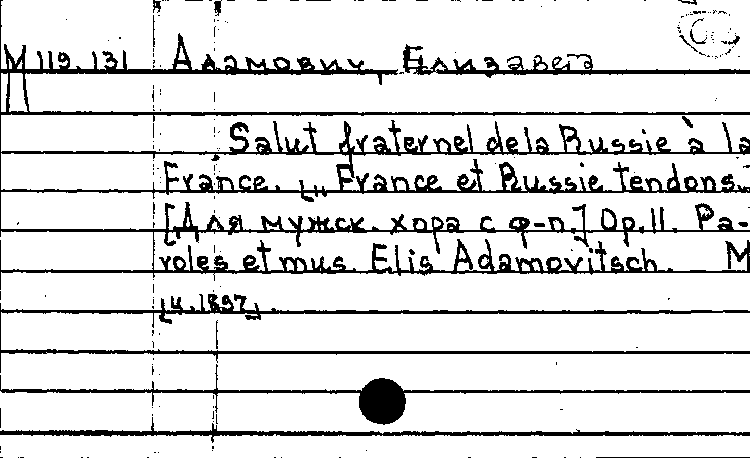 М 119.131 Адамович, Елизавета
Salut fraternel de la Russie à la
France. [„ France et Russie tendons..
[Для мужск. хора с ф-п.] Op.11. Pa-
roles et mus. Elis Adamovitsch. М
[ц.1897].